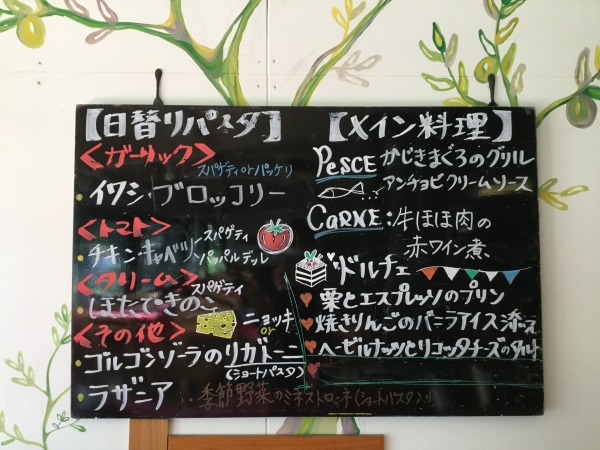 【日替りパスタ】
<ガーリック>
スパゲティ or パッケリ
・イワシ・ブロッコリー
<トマト>
・チキン・キャベツ
スパゲティ
パッパルデッレ
<クリーム>
スパゲティ
・ほたてきのこ
ニョッキ
or
<その他>
・ゴルゴンゾーラのリガトーニ
(ショートパスタ)
・ラザニア
・季節野菜のミネストローネ(ショートパスタ入り)
【メイン料理】
PESCE かじきまぐろのグリル
アンチョビクリームソース
CARNE:牛ほほ肉の
赤ワイン煮、
ドルチェ
栗とエスプレッソのプリン
焼きりんごのバニラアイス添え
ヘーゼルナッツとリコッタチーズのタルト